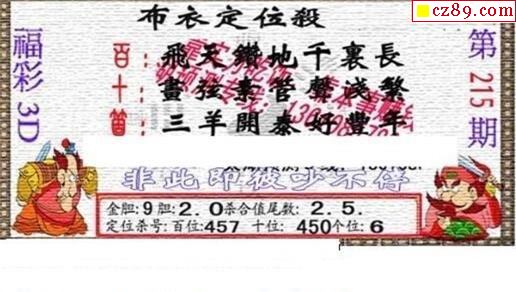 cz89.com
布衣定位殺
福彩3D
第215期
百：飛天鑽地千裏長
十：畫弦素管聲淺繁
個：三羊開泰好豐年
非此即彼少不得
金胆:9胆:2.0杀合值尾数:2.5.
定位杀号:百位:457 十位:450个位:6